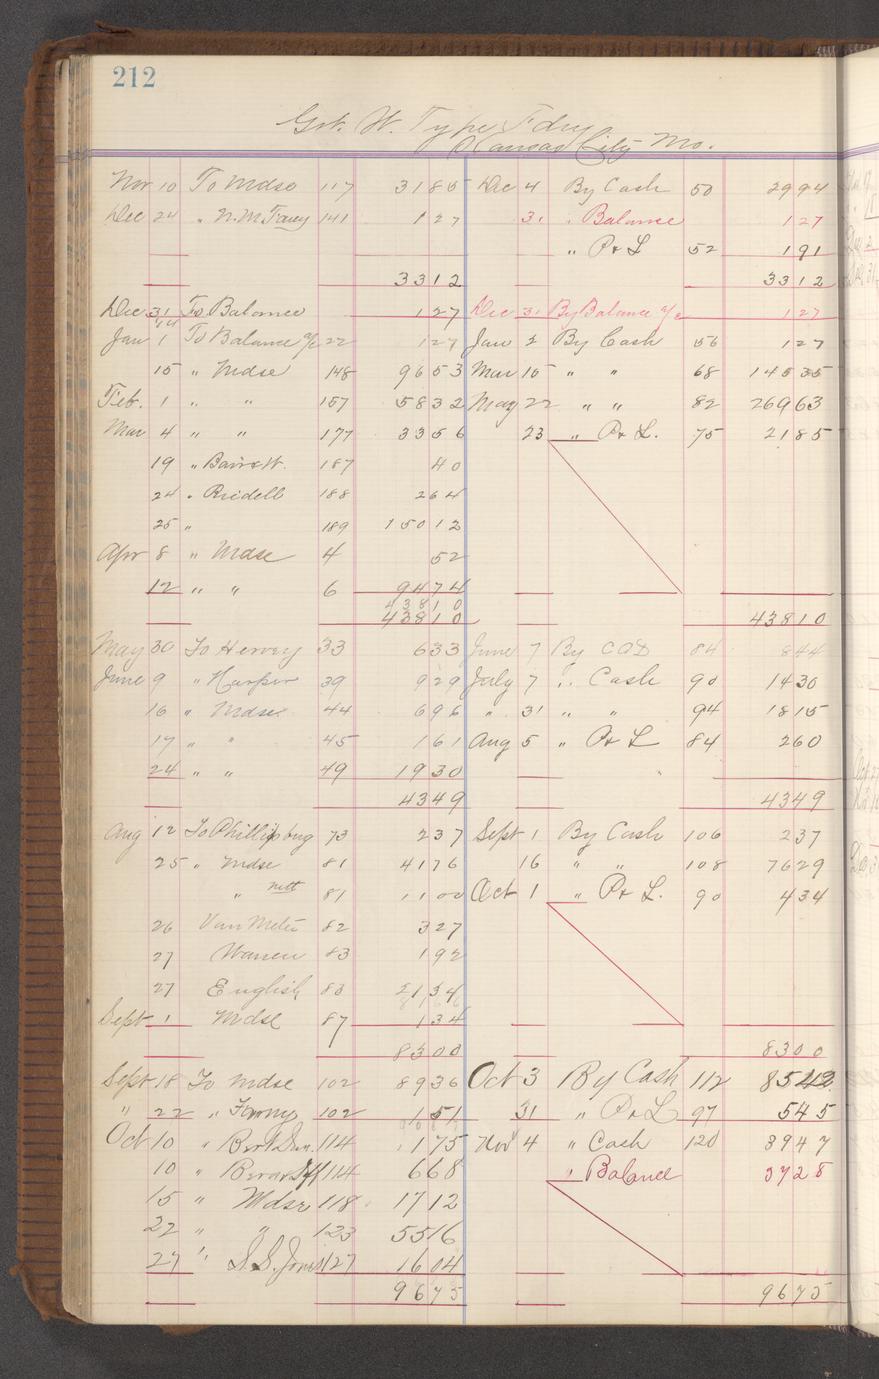 212
Grt. W. Type Fdry
Kansas City Mo.
Nov 10 To Mdse 117 3185 Dec 4 By Cash 50 2994
Dec 24 " N.M. 141 127 31 " Balance 127
" P & L 52 191
3312 3312
Dec 31 To Balance 127 Dec 31 By Balance a/c 127
Jan 1 To Balance a/c 22 127 Jan 2 By Cash 56 127
15 " Mdse 148 9653 Mar 15 " " 68 14535
Feb. 1 " " 157 5832 May 22 " " 82 26963
Mar 4 " " 177 3356 23 " P & L. 75 2185
19 " 187 40
24 " Riddell 188 264
25 " 189 15012
Apr 8 " Mdse 4 52
12 " " 6 9474
43810
43810 43810
May 30 To Hervey 33 633 June 7 By 84 844
June 9 " Harper 39 929 July 7 " Cash 90 1430
16 " Mdse 44 696 " 31 " " 94 1815
17 " " 45 161 Aug 5 " P & L 84 260
24 " " 49 1930
4349 4349
Aug 12 To Phillipsburg 73 237 Sept 1 By Cash 106 237
25 " Mdse 81 4176 16 " " 108 7629
" nett 81 1100 Oct 1 " P & L. 90 434
26 Van Metre 82 327
27 Warren 83 192
27 English 83 2134
Sept 1 Mdse 87 134
8300 8300
Sept 18 To Mdse 102 8936 Oct 3 By Cash 112
" 22 " 102 151 31 " P & L 97 545
Oct 10 " 114 175 Nov 4 " Cash 120 3947
10 " 114 668 " Balance 3728
15 " Mdse 118 1712
22 " " 123 5516
27 " S.S. Jones 127 1604
9675 9675